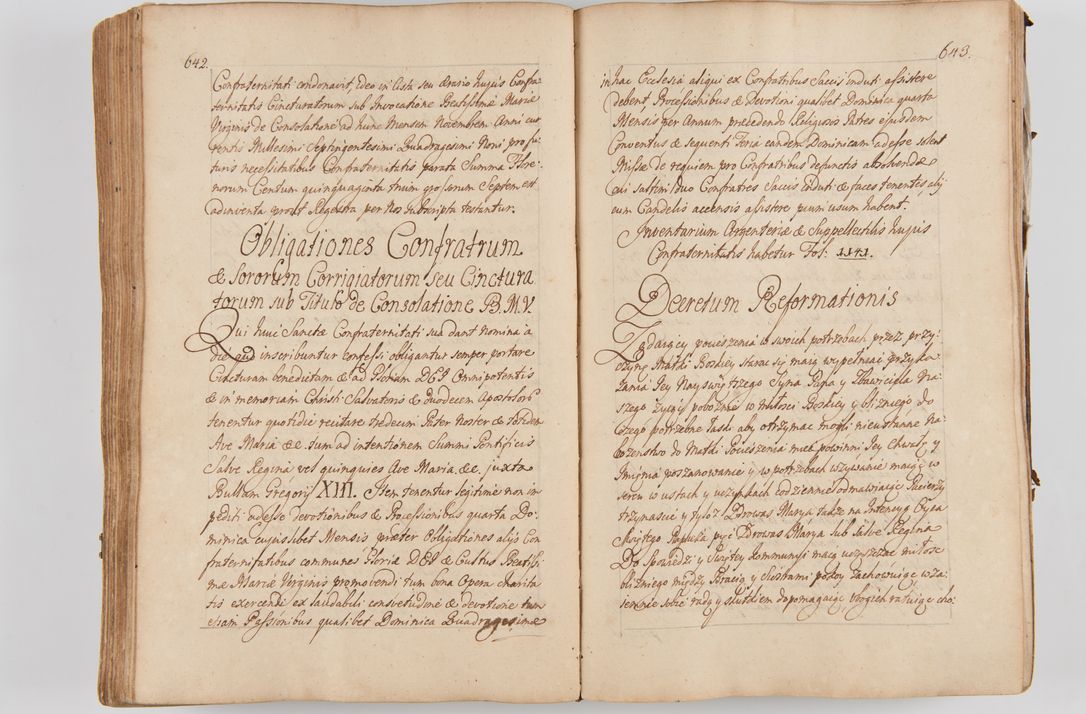 642.
Confraternitati condonavit, ideo in Cista seu Ærario hujus Confra-
ternitatis Cincturatorum sub Invocatione Beatissimæ Mariæ
Virginis de Consolatione ad hunc Mensem Novembrem Anni cur
rentis Millesimi Septingentesimi Quadragesimi Noni pro fu-
turis necessitatibus Confraternitatis parata Summa Flore-
norum Centum quinquaginta trium grossorum Septem est
adinventa prout Regestra per Nos subscripta testantur.
Obligationes Confratrum
& Sororum Corrigiatorum seu Cinctura
torum sub Titulo de Consolatione B. M. V.
Qui huic Sanctæ Confraternitati sua dant Nomina ia
die inscribuntur Confessi obligantur semper portare
Cincturam benedictam & ad Gloriam DEI Omnipotentis
& in memoriam Christi Salvatoris & Duodecem Apostolorũ
tenentur quotidie recitare tredecim Pater Noster & totidem
Ave Maria &c. tum ad intentionem Summi Pontificis
Salve Regina vel quinquies Ave Maria &c. juxta
Bullam Gregorij XIII. Item tenentur legitime non im
pediti adesse Devotionibus & Processionibus quarta Do-
minica cujuslibet Mensis præter Obligationes alijs Con
fraternitatibus communes Gloriæ DEI & Cultus Beatissi-
mæ Mariæ Virginis promovendi tum bona Opera charita
tis exercendi ex laudabili consvetudine & devotione tum
etiam Passionibus qualibet Dominica Quadragesimæ
643.
in hac Ecclesia aliqui ex Confratribus Saccis induti assistere
debent Processionibus & Devotioni qualibet Dominica quarta
Mensis per Annum præcedendo Religiosos Patres ejusdem
Conventus & sequenti Feria eandem Dominicam adesse solent
Missæ de requiem pro Confratribus defunctis absolvendæ
cui saltem duo Confratres Saccis induti & faces tenentes, alij
cum Candelis accensis assistere pium usum habent.
Inventarium Argenteriæ & Suppellectilis hujus
Confraternitatis habetur Fol: 1141.
Decretum Reformationis
Ządaiący pocieszenia w swoich potrzebach przez przy-
czynę Matki Boskiey starac się maią wypełniać przyka
zania Jey Nayswyższego Syna Pana y Zbawiciela Na-
szego żyiąc pobożnie w miłości Boskiey y bliźniego do
czego potrzebne łaski aby otrzymac mogli nieustanne Na-
bożenstwo do Matki Pocieszenia miec powinni Jey Chwałę y
Imienia poszanowanie y w potrzebach wzywanie maiąc w
sercu w ustach y uczynkach codziennie odmawiaiąc Pacierzy
trzynascie y tyloż Zdrowas Marya także na Intencyą Oyca
Swiętego Papieża pięć Zdrowas Marya lub Salve Regina
Do Spowiedzi y Swiętey Kommunyi maią uczęszczac miłość
bliźniego między Bracią y Siostrami pokoy zachowuiąc wza-
iemnie sobie radą y skutkiem dopomagaiąc ubogich ratuiąc cho-